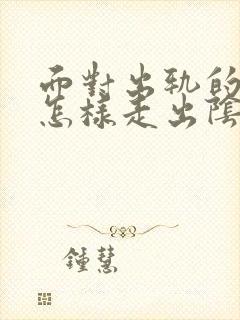 面對出軌的
怎樣走出陰
鍾慧